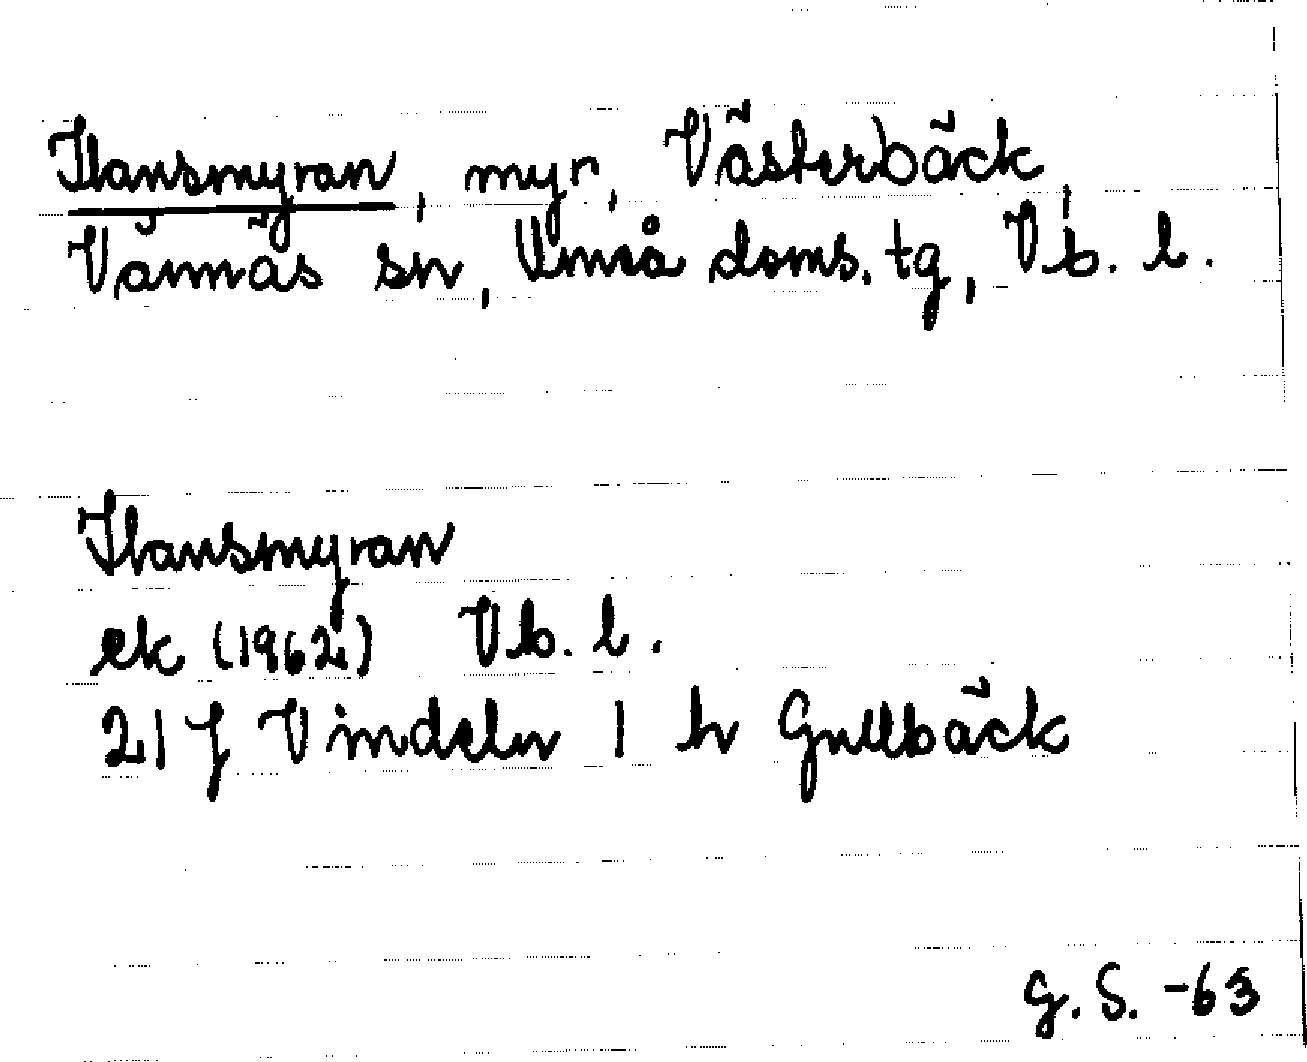 Hansmyran, myr, Västerbäck,
Vännäs sn, Umeå doms. tg, Vb. l.
Hansmyran
ek (1962) Vb. l.
21 J Vindeln 1 h Gullbäck
G. S. -63